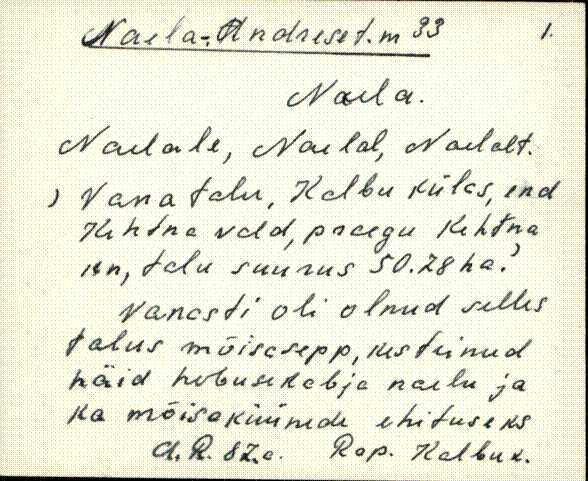 Naela-Andrese t. m 33 1.
Naela.
Naelale, Naelal, Naelalt.
) Vana talu, Kalbu külas, end
Kehtna vald, praegu Kehtna
kn, talu suurus 50.78 ha.)
Vanasti oli olnud selles
talus mõisasepp, kes teinud
häid hobusekabja naelu ja
ka mõisaküünide ehituseks
A.R. 82.a. Rap. Kalbu k.